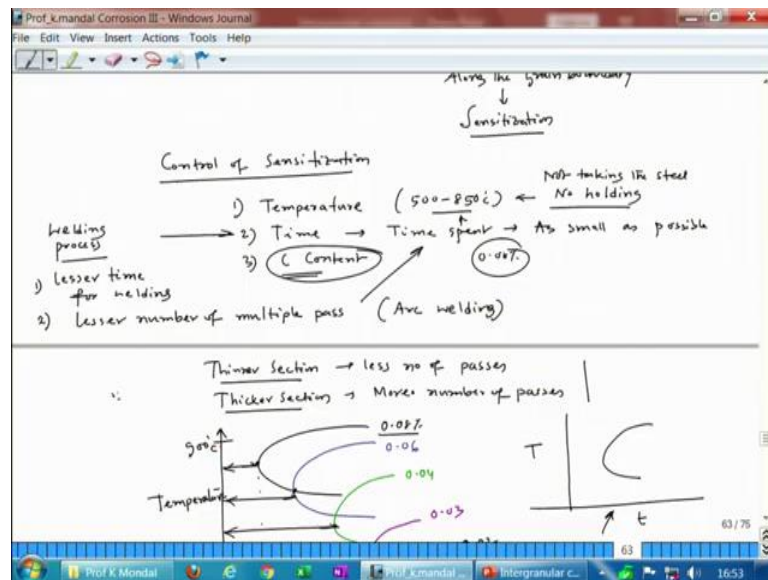 Prof_k.mandal Corrosion III - Windows Journal
File Edit View Insert Actions Tools Help
Along the grain boundary
↓
Sensitization
Control of Sensitization
1) Temperature (500-850°C) ← Not taking the steel
No holding
Welding process → 2) Time → Time spent → As small as possible
3) C Content 0.08%
1) lesser time for welding
2) lesser number of multiple pass (Arc welding)
Thinner Section → less no of passes
Thicker Section → More number of passes
900°C
0.08%
0.06
0.04
0.03
Temperature
T
t
63 / 75
63
Prof K Mondal
Prof_k.mandal ...
Intergranular c...
16:53